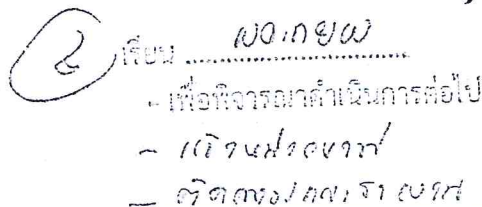 ๕ เรียน ผอ.กยผ
- เพื่อพิจารณาดำเนินการต่อไป
- แจ้งหน่วยงาน
- ติดตามและรายงาน